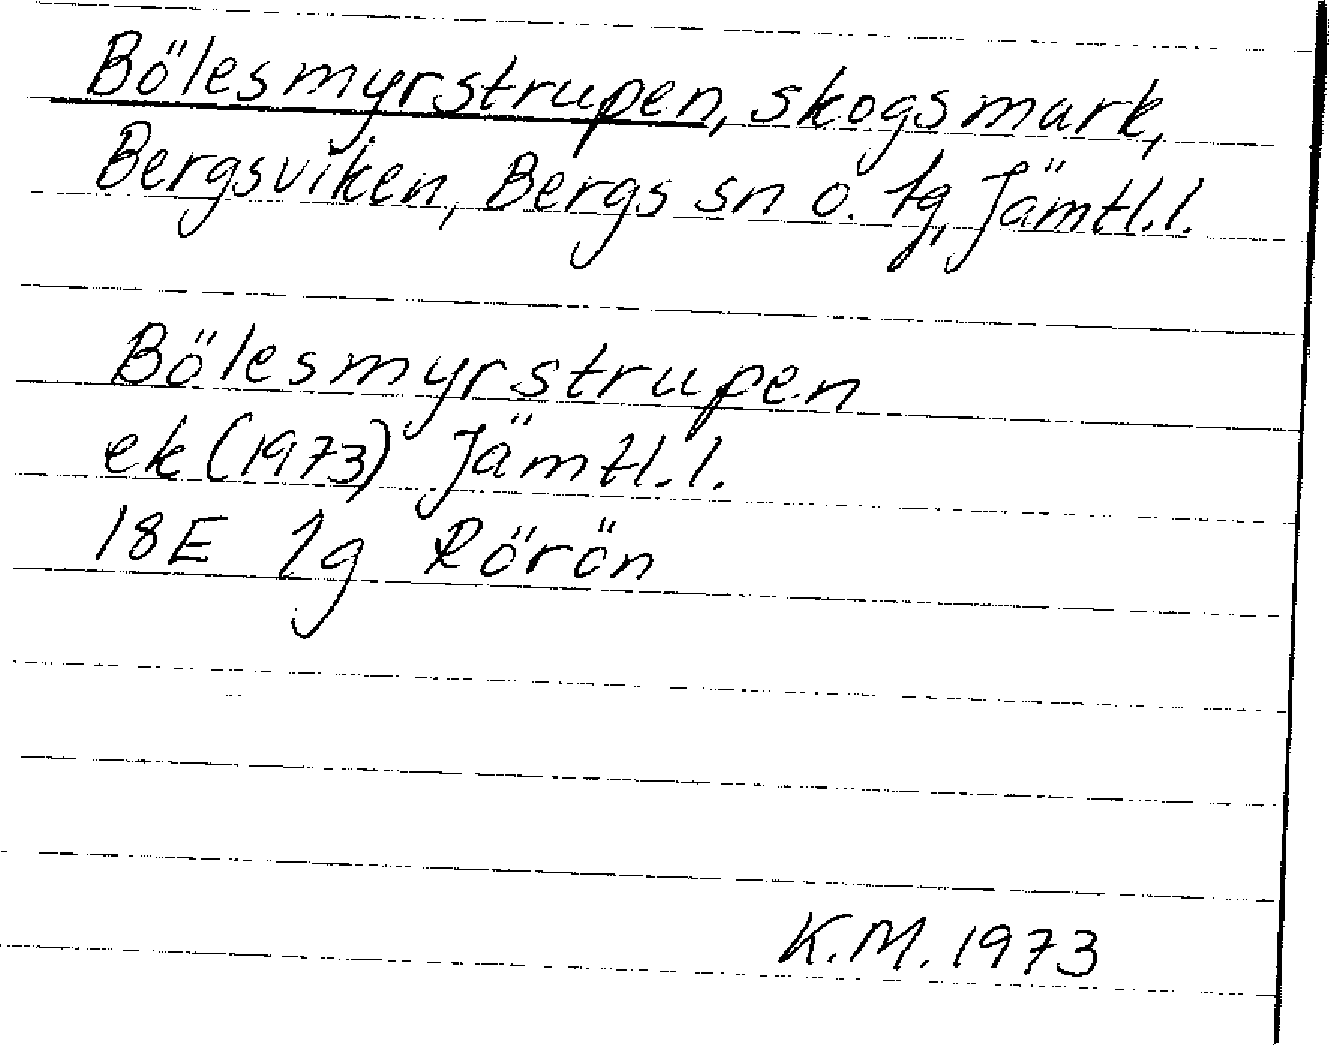 Bölesmyrstrupen, skogsmark,
Bergsviken, Bergs sn o. tg, Jämtl.l.
Bölesmyrstrupen
ek (1973) Jämtl.l.
18E 1g Rörön
K.M. 1973